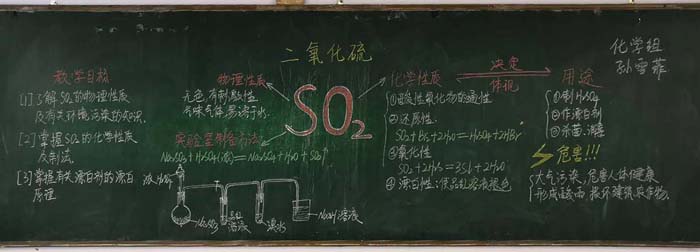 二氧化硫
化学组
孙雪菲
教学目标
[1]了解SO₂的物理性质
及有关环境污染的知识.
[2]掌握SO₂的化学性质
及制法.
[3]掌握有关漂白剂的漂白
原理
物理性质
无色,有刺激性
气味气体,易溶于水.
实验室制备方法
Na₂SO₃+H₂SO₄(浓)=Na₂SO₄+H₂O+SO₂↑
浓H₂SO₄
Na₂SO₃
品红
溶液
溴水
NaOH溶液
SO₂
化学性质
①酸性氧化物的通性
②还原性
SO₂+Br₂+2H₂O=H₂SO₄+2HBr
③氧化性
SO₂+2H₂S=3S↓+2H₂O
④漂白性:使品红溶液褪色
决定
体现
用途
①制H₂SO₄
②作漂白剂
③杀菌.消毒
危害!!!
大气污染,危害人体健康
形成酸雨 损坏建筑农作物.